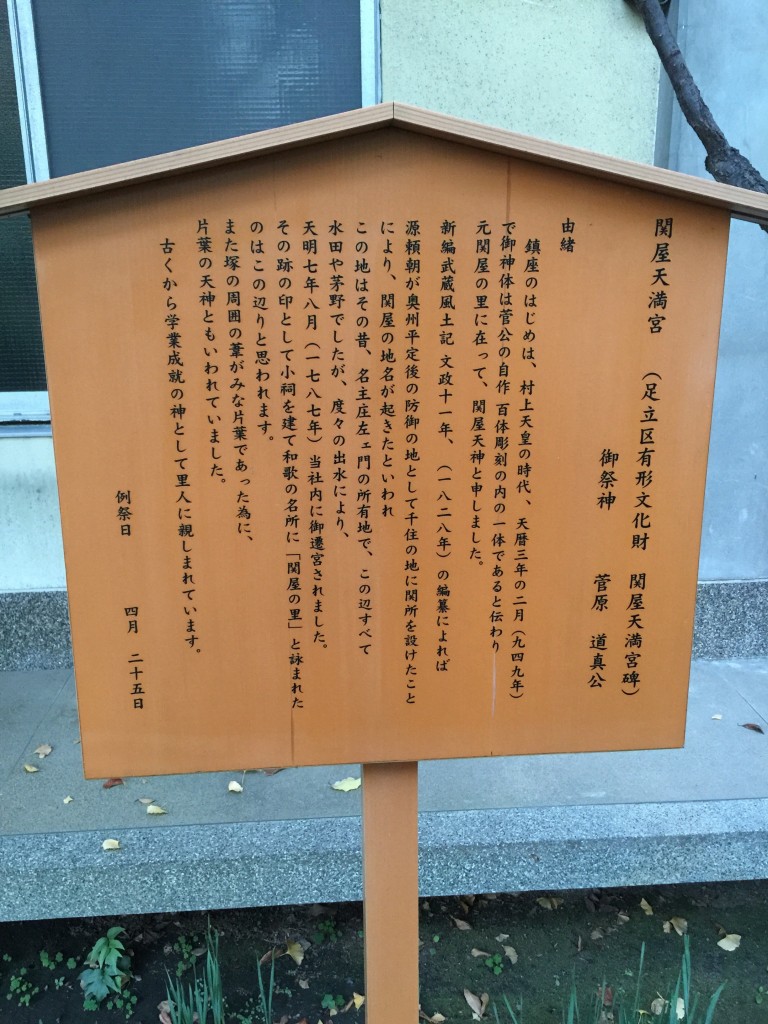 関屋天満宮 （足立区有形文化財 関屋天満宮碑）
御祭神 菅原 道真公
由緒
鎮座のはじめは、村上天皇の時代、天暦三年の二月（九四九年）
で御神体は菅公の自作 百体彫刻の内の一体であると伝わり
元関屋の里に在って、関屋天神と申しました。
新編武蔵風土記 文政十一年、（一八二八年）の編纂によれば
源頼朝が奥州平定後の防御の地として千住の地に関所を設けたこと
により、関屋の地名が起きたといわれ
この地はその昔、名主庄左ェ門の所有地で、この辺すべて
水田や茅野でしたが、度々の出水により、
天明七年八月（一七八七年）当社内に御遷宮されました。
その跡の印として小祠を建て和歌の名所に「関屋の里」と詠まれた
のはこの辺りと思われます。
また塚の周囲の葦がみな片葉であった為に、
片葉の天神ともいわれていました。
古くから学業成就の神として里人に親しまれています。
例祭日 四月 二十五日